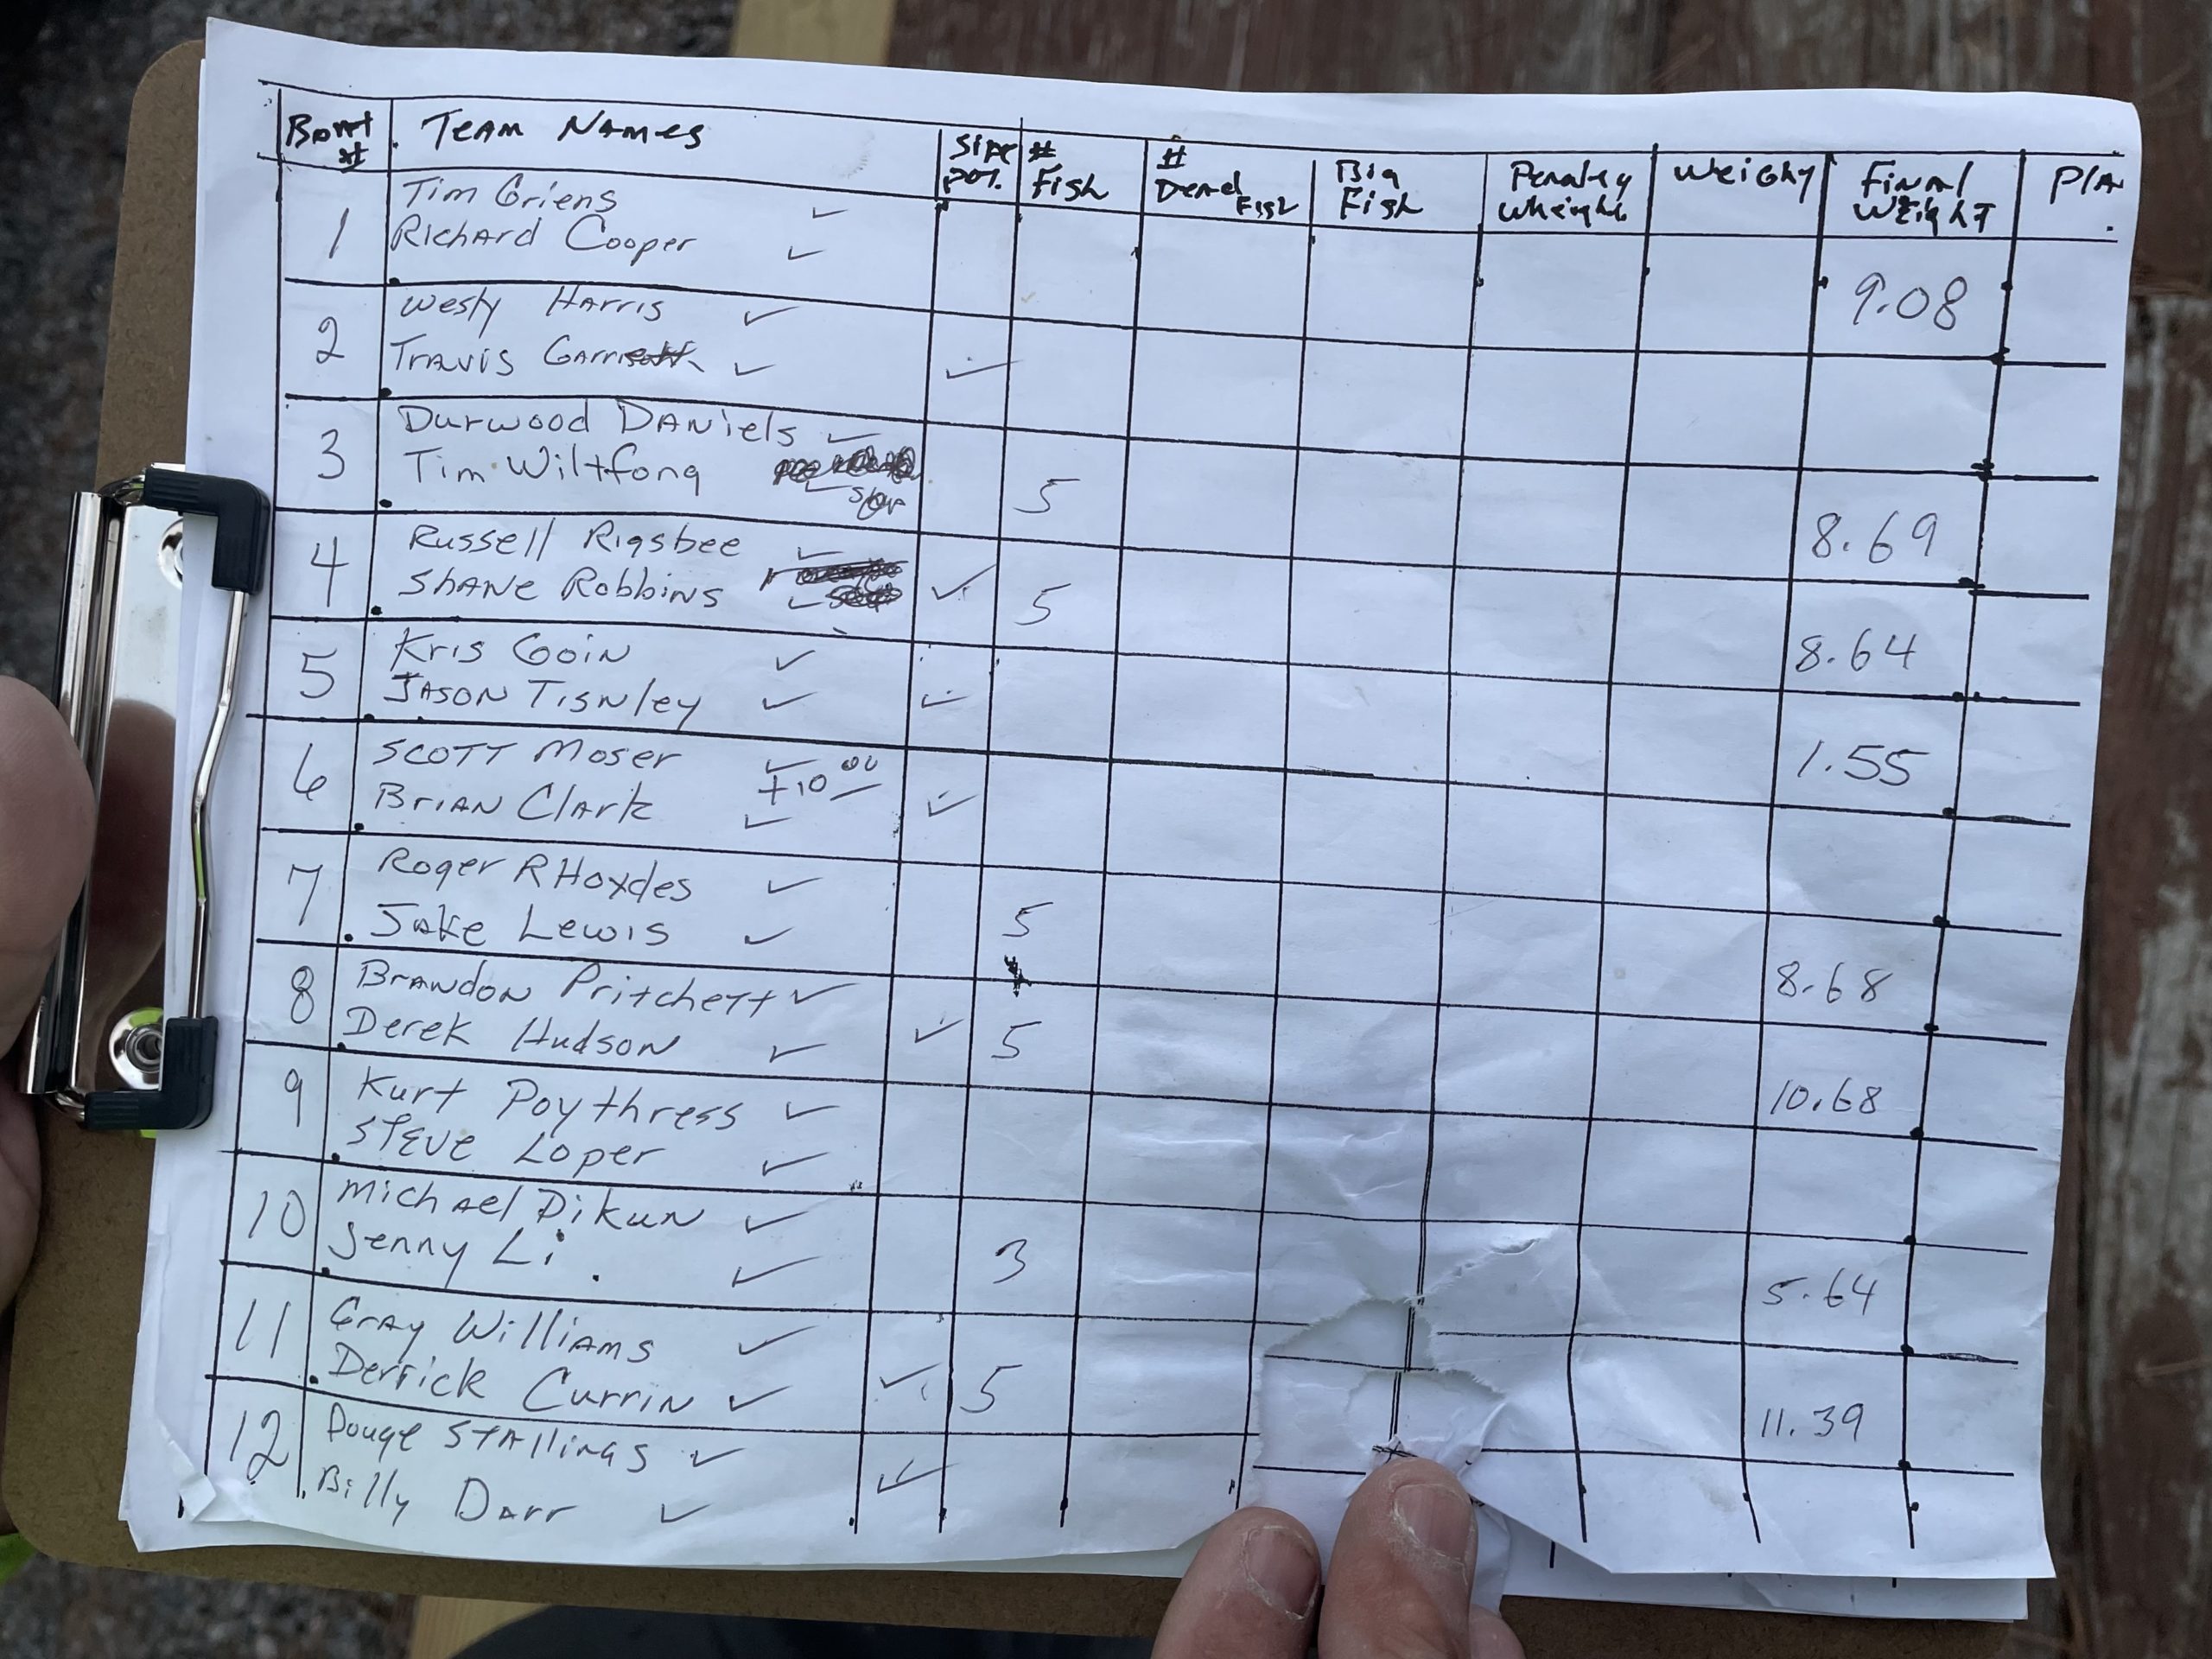 Boat # Team Names Side Pot. # Fish # Dead Fish Big Fish Penalty Wheight Weighy Final Weight Pla
1 Tim Griens ✓
Richard Cooper ✓ 9.08
2 Westy Harris ✓
Travis ✓ ✓
3 Durwood Daniels ✓
Tim Wiltfong ✓ 5 8.69
4 Russell Rigsbee ✓
Shane Robbins ✓ ✓ 5 8.64
5 Kris Goin ✓
Jason Tisnley ✓ ✓ 1.55
6 Scott Moser ✓
+10 00
Brian Clark ✓ ✓
7 Roger RHoxdes ✓
Jake Lewis ✓ 5 8.68
8 Brandon Pritchett ✓
Derek Hudson ✓ ✓ 5 10.68
9 Kurt Poythress ✓
Steve Loper ✓
10 Michael Dikun ✓
Jenny Li. ✓ 3 5.64
11 Gray Williams ✓
Derrick Currin ✓ ✓ 5 11.39
12 Douge Stallings ✓
Billy Darr ✓ ✓